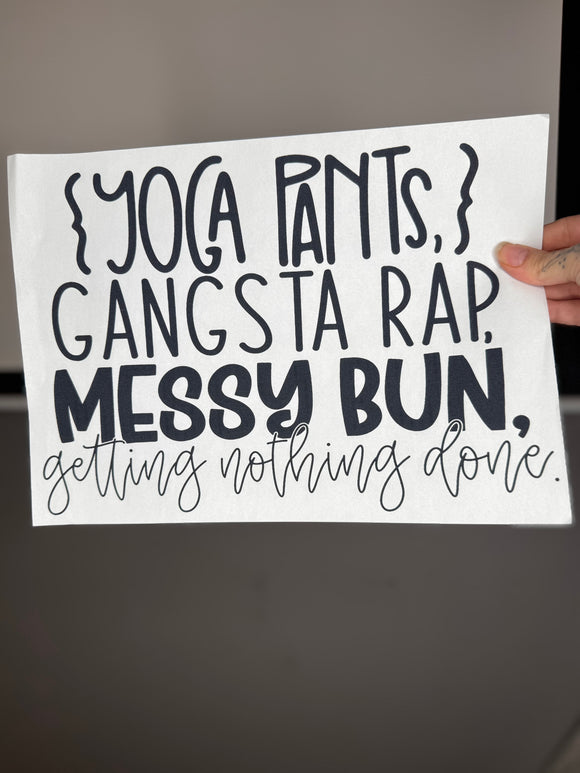 {YOGA PANTS,}
GANGSTA RAP,
MESSY BUN,
getting nothing done.